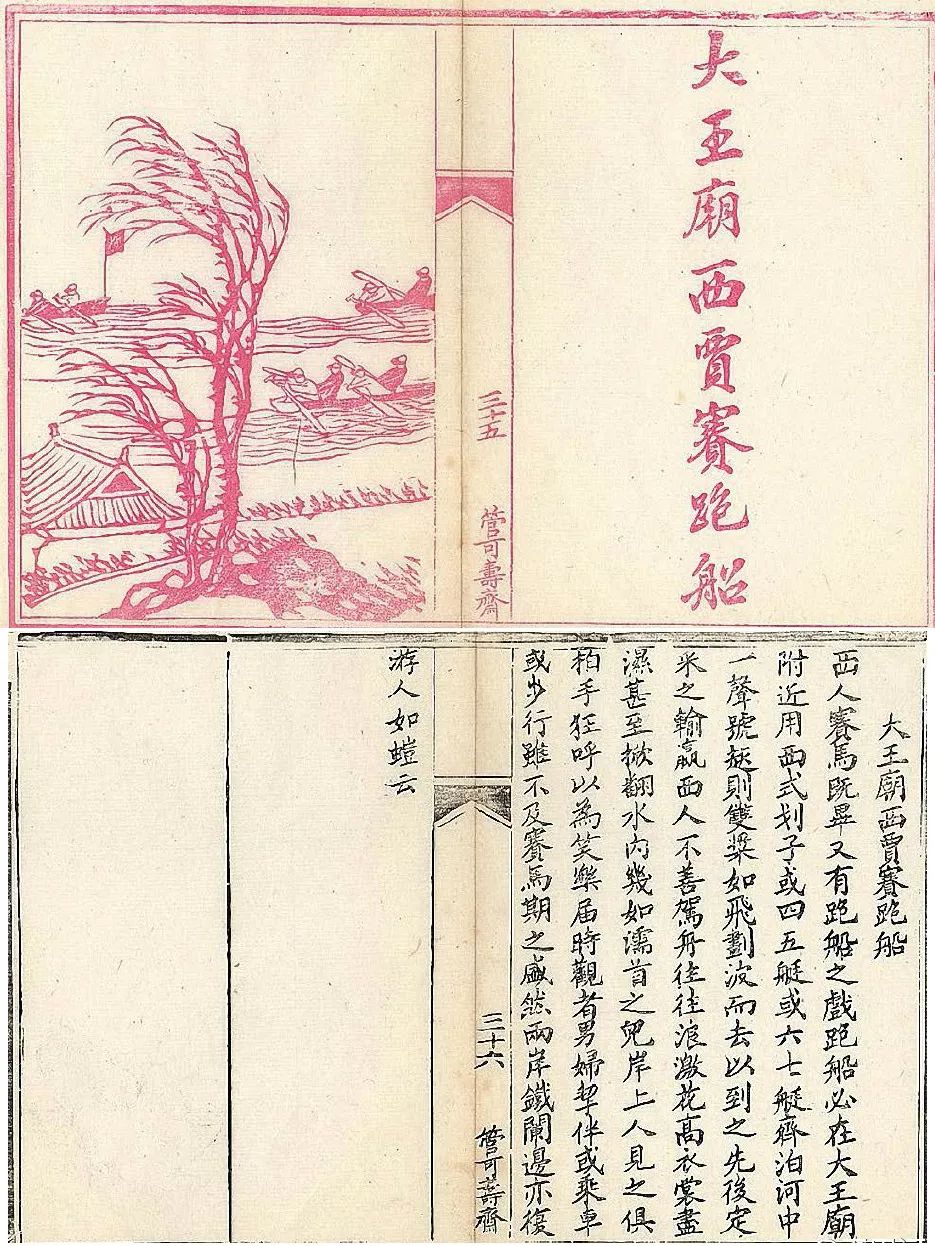 大王廟西賈賽跑船
三十五
管可壽齋
大王廟西賈賽跑船
西人賽馬既畢又有跑船之戲跑船必在大王廟
附近用西式划子或四五艇或六七艇齊泊河中
一聲號起則雙槳如飛劃波而去以到之先後定
釆之輸贏西人不善駕舟往往浪激花高衣裳盡
濕甚至掀翻水內幾如濡首之兒岸上人見之俱
拍手狂呼以為笑樂屆時觀者男婦挈伴或乘車
或步行雖不及賽馬期之盛然兩岸鐵闌邊亦復
游人如螘云
三十六
管可壽齋